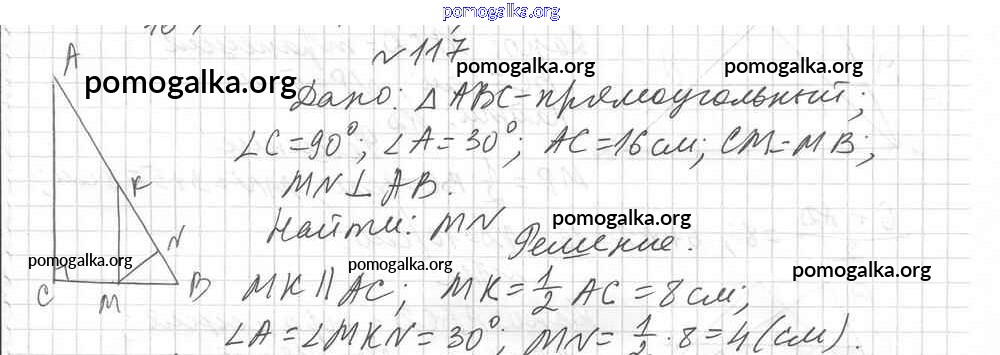 pomogalka.org
№ 117
pomogalka.org pomogalka.org
pomogalka.org
A
Дано: △ ABC - прямоугольный;
∠C = 90°; ∠A = 30°; AC = 16 см; CM = MB;
MN ⊥ AB.
K
Найти: MN
pomogalka.org
Решение.
N
pomogalka.org pomogalka.org pomogalka.org
C M B
MK || AC; MK = 1/2 AC = 8 см;
∠A = ∠MKN = 30°; MN = 1/2 · 8 = 4 (см).